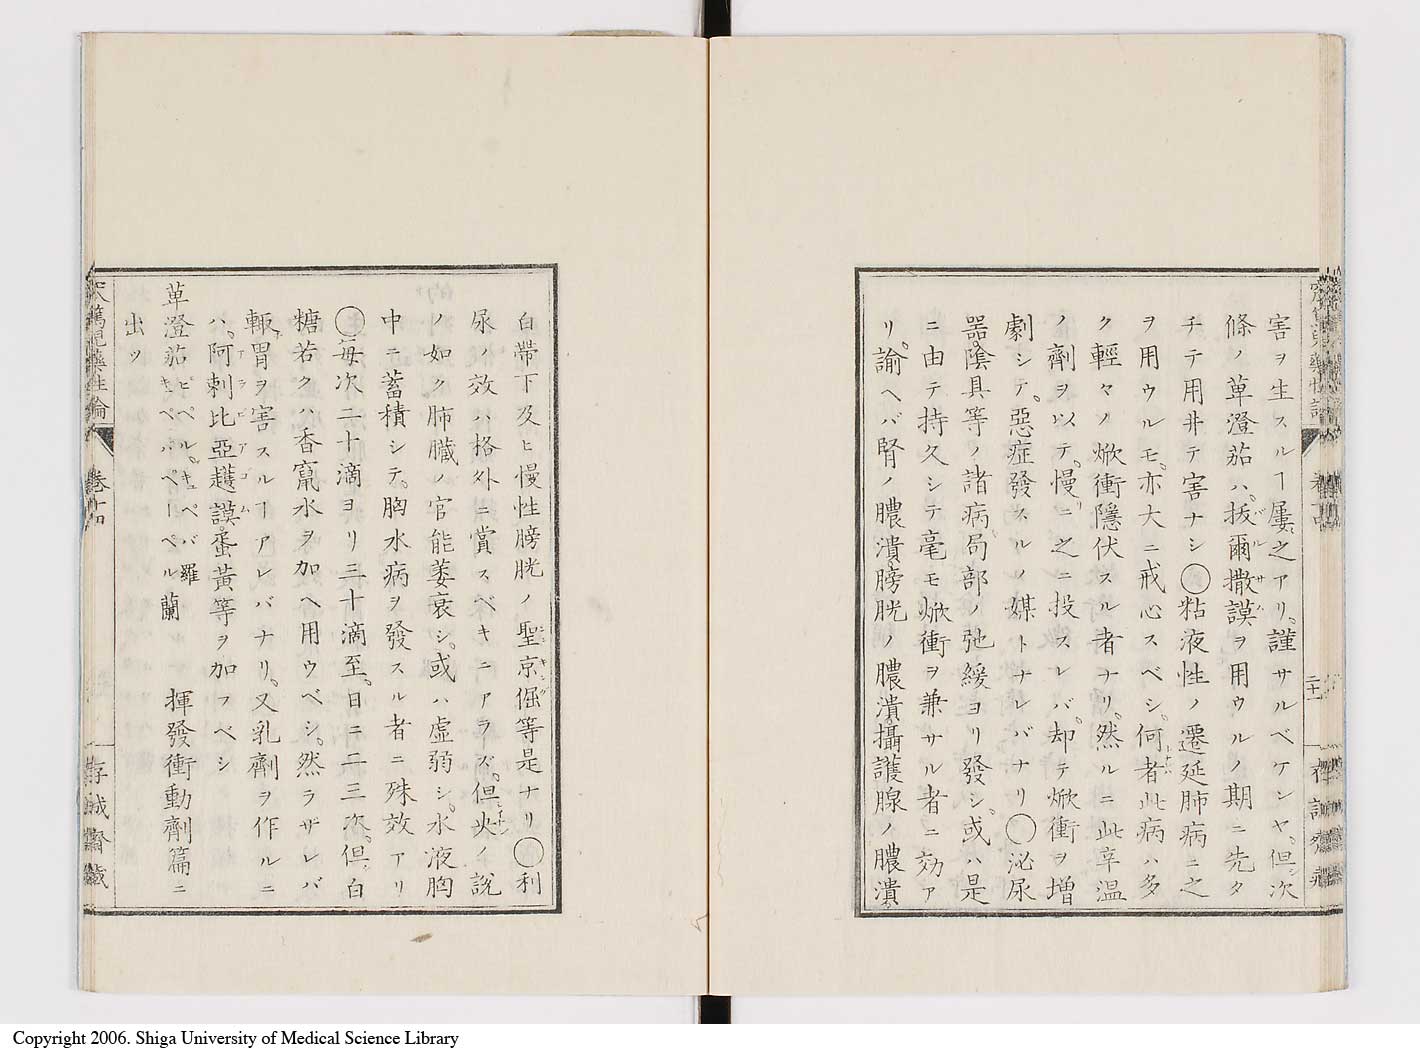 害ヲ生スルヿ屢之アリ。謹サルベケンヤ。但次
條ノ蓽澄茄ハ。拔爾撒謨ヲ用ウルノ期ニ先タ
チテ用井テ害ナシ〇粘液性ノ遷延肺病ニ之
ヲ用ウルモ。亦大ニ戒心スベシ。何者此病ハ多
ク輕々ノ焮衝隱伏スル者ナリ。然ルニ此辛温
ノ劑ヲ以テ。慢ニ之ニ投スレバ。却テ焮衝ヲ增
劇シテ。惡症發スルノ媒トナレバナリ〇泌尿
器。陰具等ノ諸病。局部ノ弛緩ヨリ發シ。或ハ是
ニ由テ持久シテ毫モ焮衝ヲ兼サル者ニ効ア
リ。諭ヘバ腎ノ膿潰。膀胱ノ膿潰。攝護腺ノ膿潰。
二十一
白帶下及ヒ慢性膀胱ノ聖京倔等是ナリ〇利
尿ノ效ハ格外ニ賞スベキニアラズ。但火ノ說
ノ如ク肺臓ノ官能萎衰シ。或ハ虚弱シ。水液胸
中ニ蓄積シテ。胸水病ヲ發スル者ニ殊效アリ
〇每次二十滴ヨリ三十滴至。日ニ二三次。但白
糖若クハ香竄水ヲ加ヘ用ウベシ。然ラザレバ
輙胃ヲ害スルヿアレバナリ。又乳劑ヲ作ルニ
ハ。阿剌比亞護謨。蛋黃等ヲ加フベシ
蓽澄茄 ピペル。キュベバ 羅 キュベバペーペル 蘭 揮發衝動劑篇ニ
出ツ
卷十四